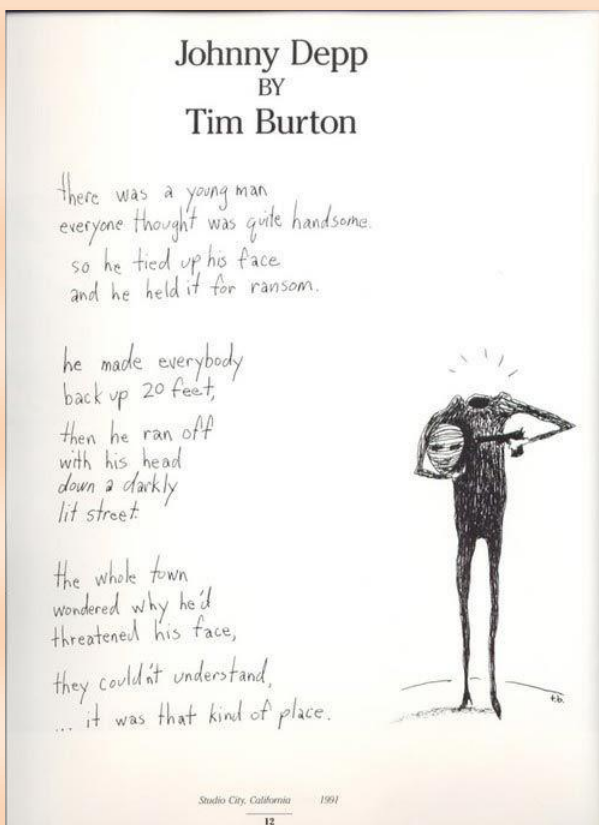 Johnny Depp
BY
Tim Burton
there was a young man
everyone thought was quite handsome.
so he tied up his face
and he held it for ransom.
he made everybody
back up 20 feet,
then he ran off
with his head
down a darkly
lit street.
the whole town
wondered why he'd
threatened his face,
they couldn't understand,
... it was that kind of place.
t.b.
Studio City, California 1991
12